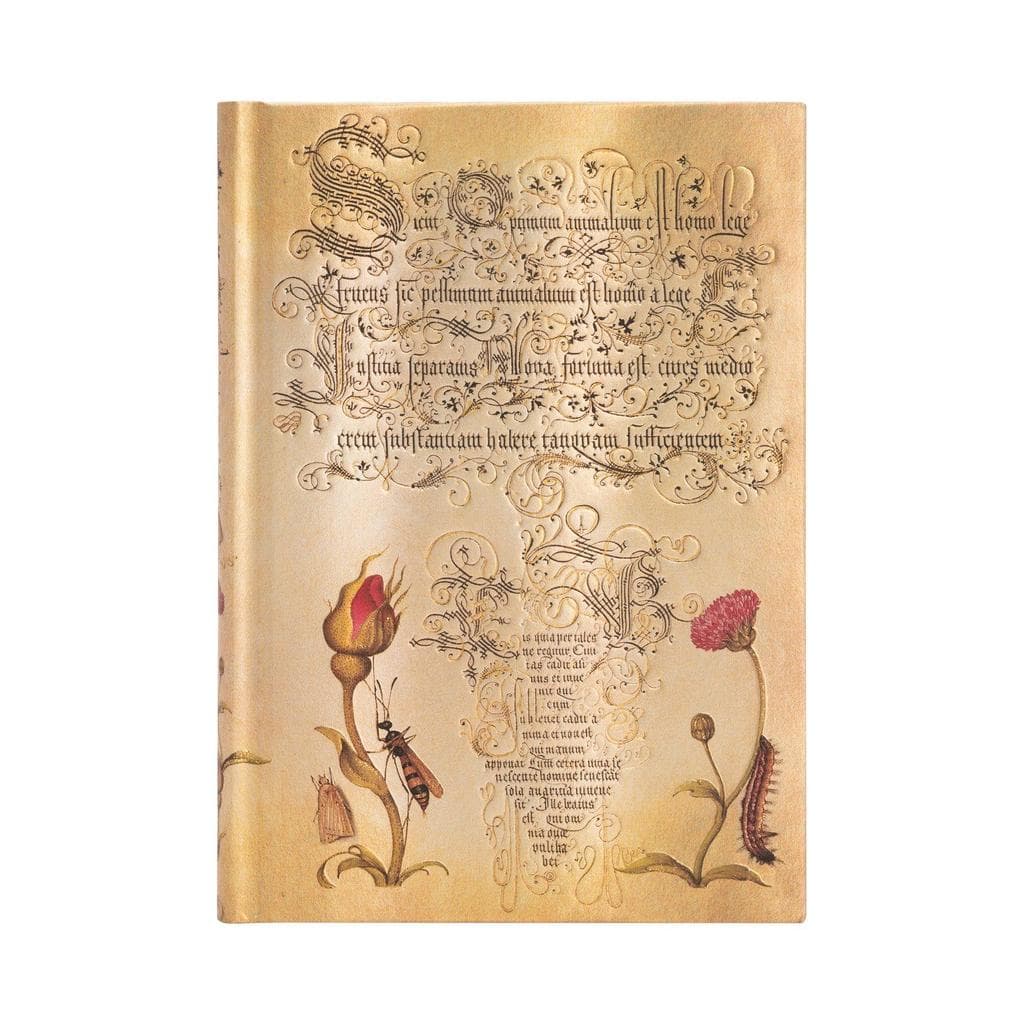 Sicut Optimum animalium est homo lege
fruens sic pessimum animalium est homo a lege Et
Iustitia separatus Nova fortuna est cives medio
crem substantiam habere tanquam sufficientem
is quia per tales
ne regnur. Civi
tas cadit ali
nus et inve
nit qui
eum
sublevet cadit a
nima et non est
qui manum
apponat Cum cetera vitia se
nescente homine senescat
sola avaritia iuvene
sit. Ille beatus
est qui om
nia quæ
vult ha
bet.